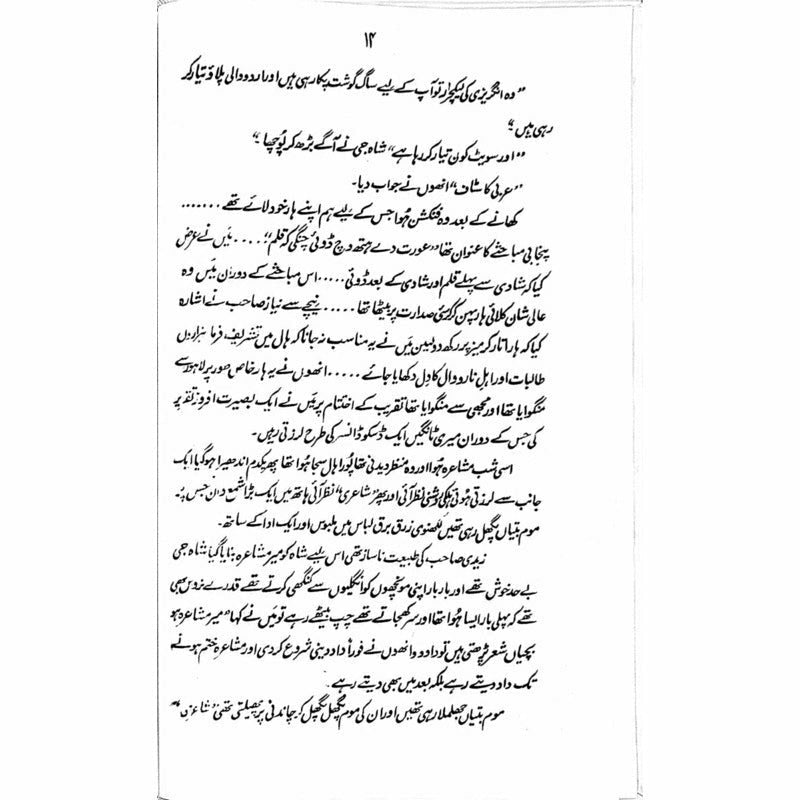 ۱۴
”وہ انگریزی کی لیکچرار تو آپ کے لیے ساگ گوشت پکا رہی ہیں اور اردو والی پلاؤ تیار کر
رہی ہیں۔“
”اور سویٹ کون تیار کر رہا ہے“ شاہ جی نے آگے بڑھ کر پوچھا۔“
”عربی کا سٹاف“ انھوں نے جواب دیا۔
کھانے کے بعد وہ فنکشن ہُوا جس کے لیے ہم اپنے ہار خود لائے تھے .......
پنجابی مباحثے کا عنوان تھا ”عورت دے ہتھ وچ ڈوئی چنگی کہ قلم“..... میں نے عرض
کیا کہ شادی سے پہلے قلم اور شادی کے بعد ڈوئی ..... اس مباحثے کے دوران میں وہ
عالی شان کلائی ہار پہن کر کرسئ صدارت پر بیٹھا تھا ..... نیچے سے نیاز صاحب نے اشارہ
کیا کہ ہار اتار کر میز پر رکھ دو لیکن میں نے یہ مناسب نہ جانا کہ ہال میں تشریف فرما ہزاروں
طالبات اور اہلِ نارووال کا دِل دکھایا جائے ..... انھوں نے یہ ہار خاص طور پر لاہور سے
منگوایا تھا اور مجھی سے منگوایا تھا تقریب کے اختتام پر میں نے ایک بصیرت افروز تقریر
کی جس کے دوران میری ٹانگیں ایک ڈسکو ڈانسر کی طرح لرزتی رہیں۔
اسی شب مشاعرہ ہُوا اور وہ منظر دیدنی تھا پورا ہال سجا ہُوا تھا پھر یکدم اندھیرا ہو گیا ایک
جانب سے لرزتی ہوئی ہلکی روشنی نظر آئی اور پھر ”شاعری“ نظر آئی ہاتھ میں ایک بڑا شمع دان جس پر۔
موم بتیاں پگھل رہی تھیں لکھنوی زرق برق لباس میں ملبوس اور ایک ادا کے ساتھ۔
زیدی صاحب کی طبیعت ناساز تھی اس لیے شاہ کو میرِ مشاعرہ بنایا گیا شاہ جی
بے حد خوش تھے اور بار بار اپنی مونچھوں کو انگلیوں سے کنگھی کرتے تھے قدرے نروس بھی
تھے کہ پہلی بار ایسا ہُوا تھا اور سر کھجاتے تھے چپ بیٹھے رہے تو میں نے کہا ”میرِ مشاعرہ ہو
بچیاں شعر پڑھتی ہیں تو داد دو انھوں نے فوراً داد دینی شروع کر دی اور مشاعرہ ختم ہونے
تک داد دیتے رہے بلکہ بعد میں بھی دیتے رہے
موم بتیاں جھلملا رہی تھیں اور ان کی موم پگھل پگھل کر چاندنی پر پھیلتی تھی ”شاعری“